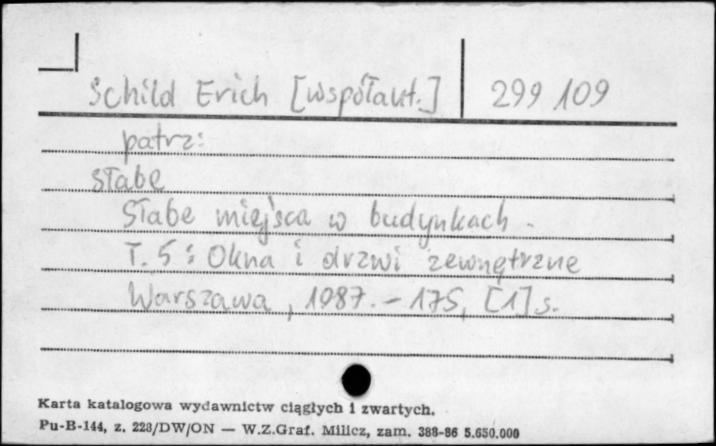 Schild Erich [współaut.] 299 109
patrz:
Słabe
Słabe miejsca w budynkach.
T. 5: Okna i drzwi zewnętrzne
Warszawa, 1987. - 175, [1] s.
Karta katalogowa wydawnictw ciągłych i zwartych.
Pu-B-144, z. 228/DW/ON — W.Z.Graf. Milicz, zam. 388-86 5.650.000